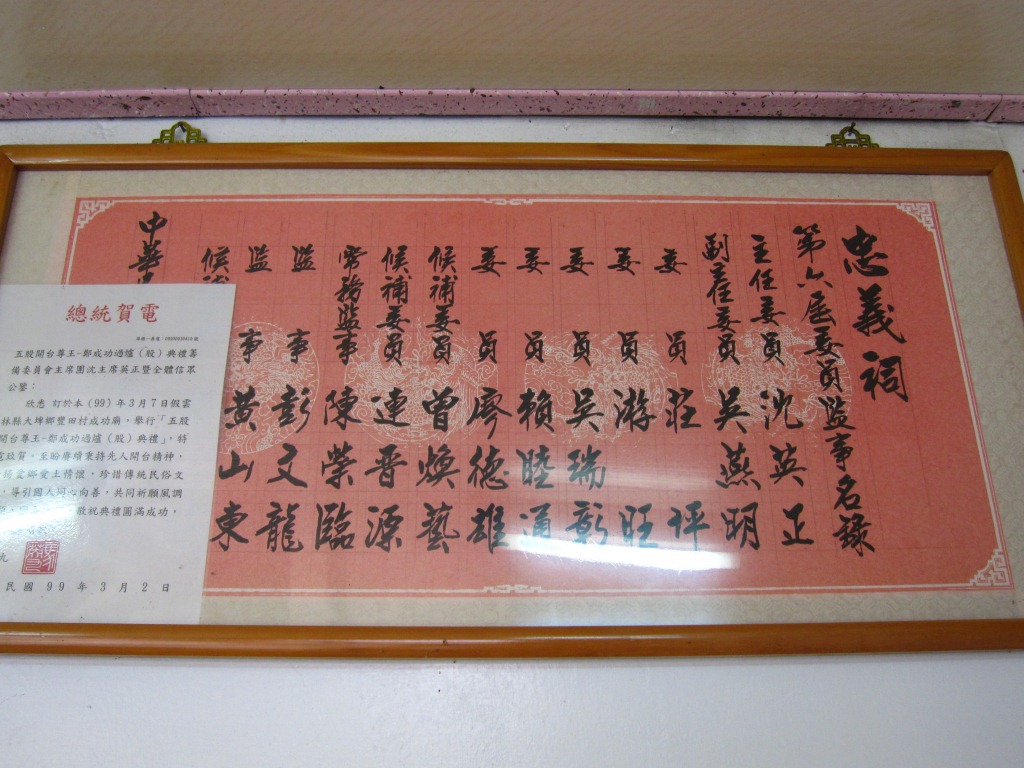 忠義祠
第六屆委員監事名錄
主任委員沈英正
副主任委員吳燕明
委員莊坪
委員游旺
委員吳瑞彰
委員賴睦通
委員廖德雄
候補委員曾煥藝
候補委員連晋源
常務監事陳榮臨
監事彭文龍
監事黃山東
候補
中華
總統賀電
五股開台尊王-鄭成功過爐(股)典禮籌
備委員會主席團沈主席英正暨全體信眾
公鑒:
欣悉 訂於本(99)年3月7日假雲
林縣大埤鄉豐田村成功廟,舉行「五股
開台尊王-鄭成功過爐(股)典禮」,特
電致賀。至盼賡續秉持先人開台精神,
積愛鄉愛土情懷,珍惜傳統民俗文
,導引國人同心向善,共同祈願風調
敬祝典禮圓滿成功。
九
民國99年3月2日